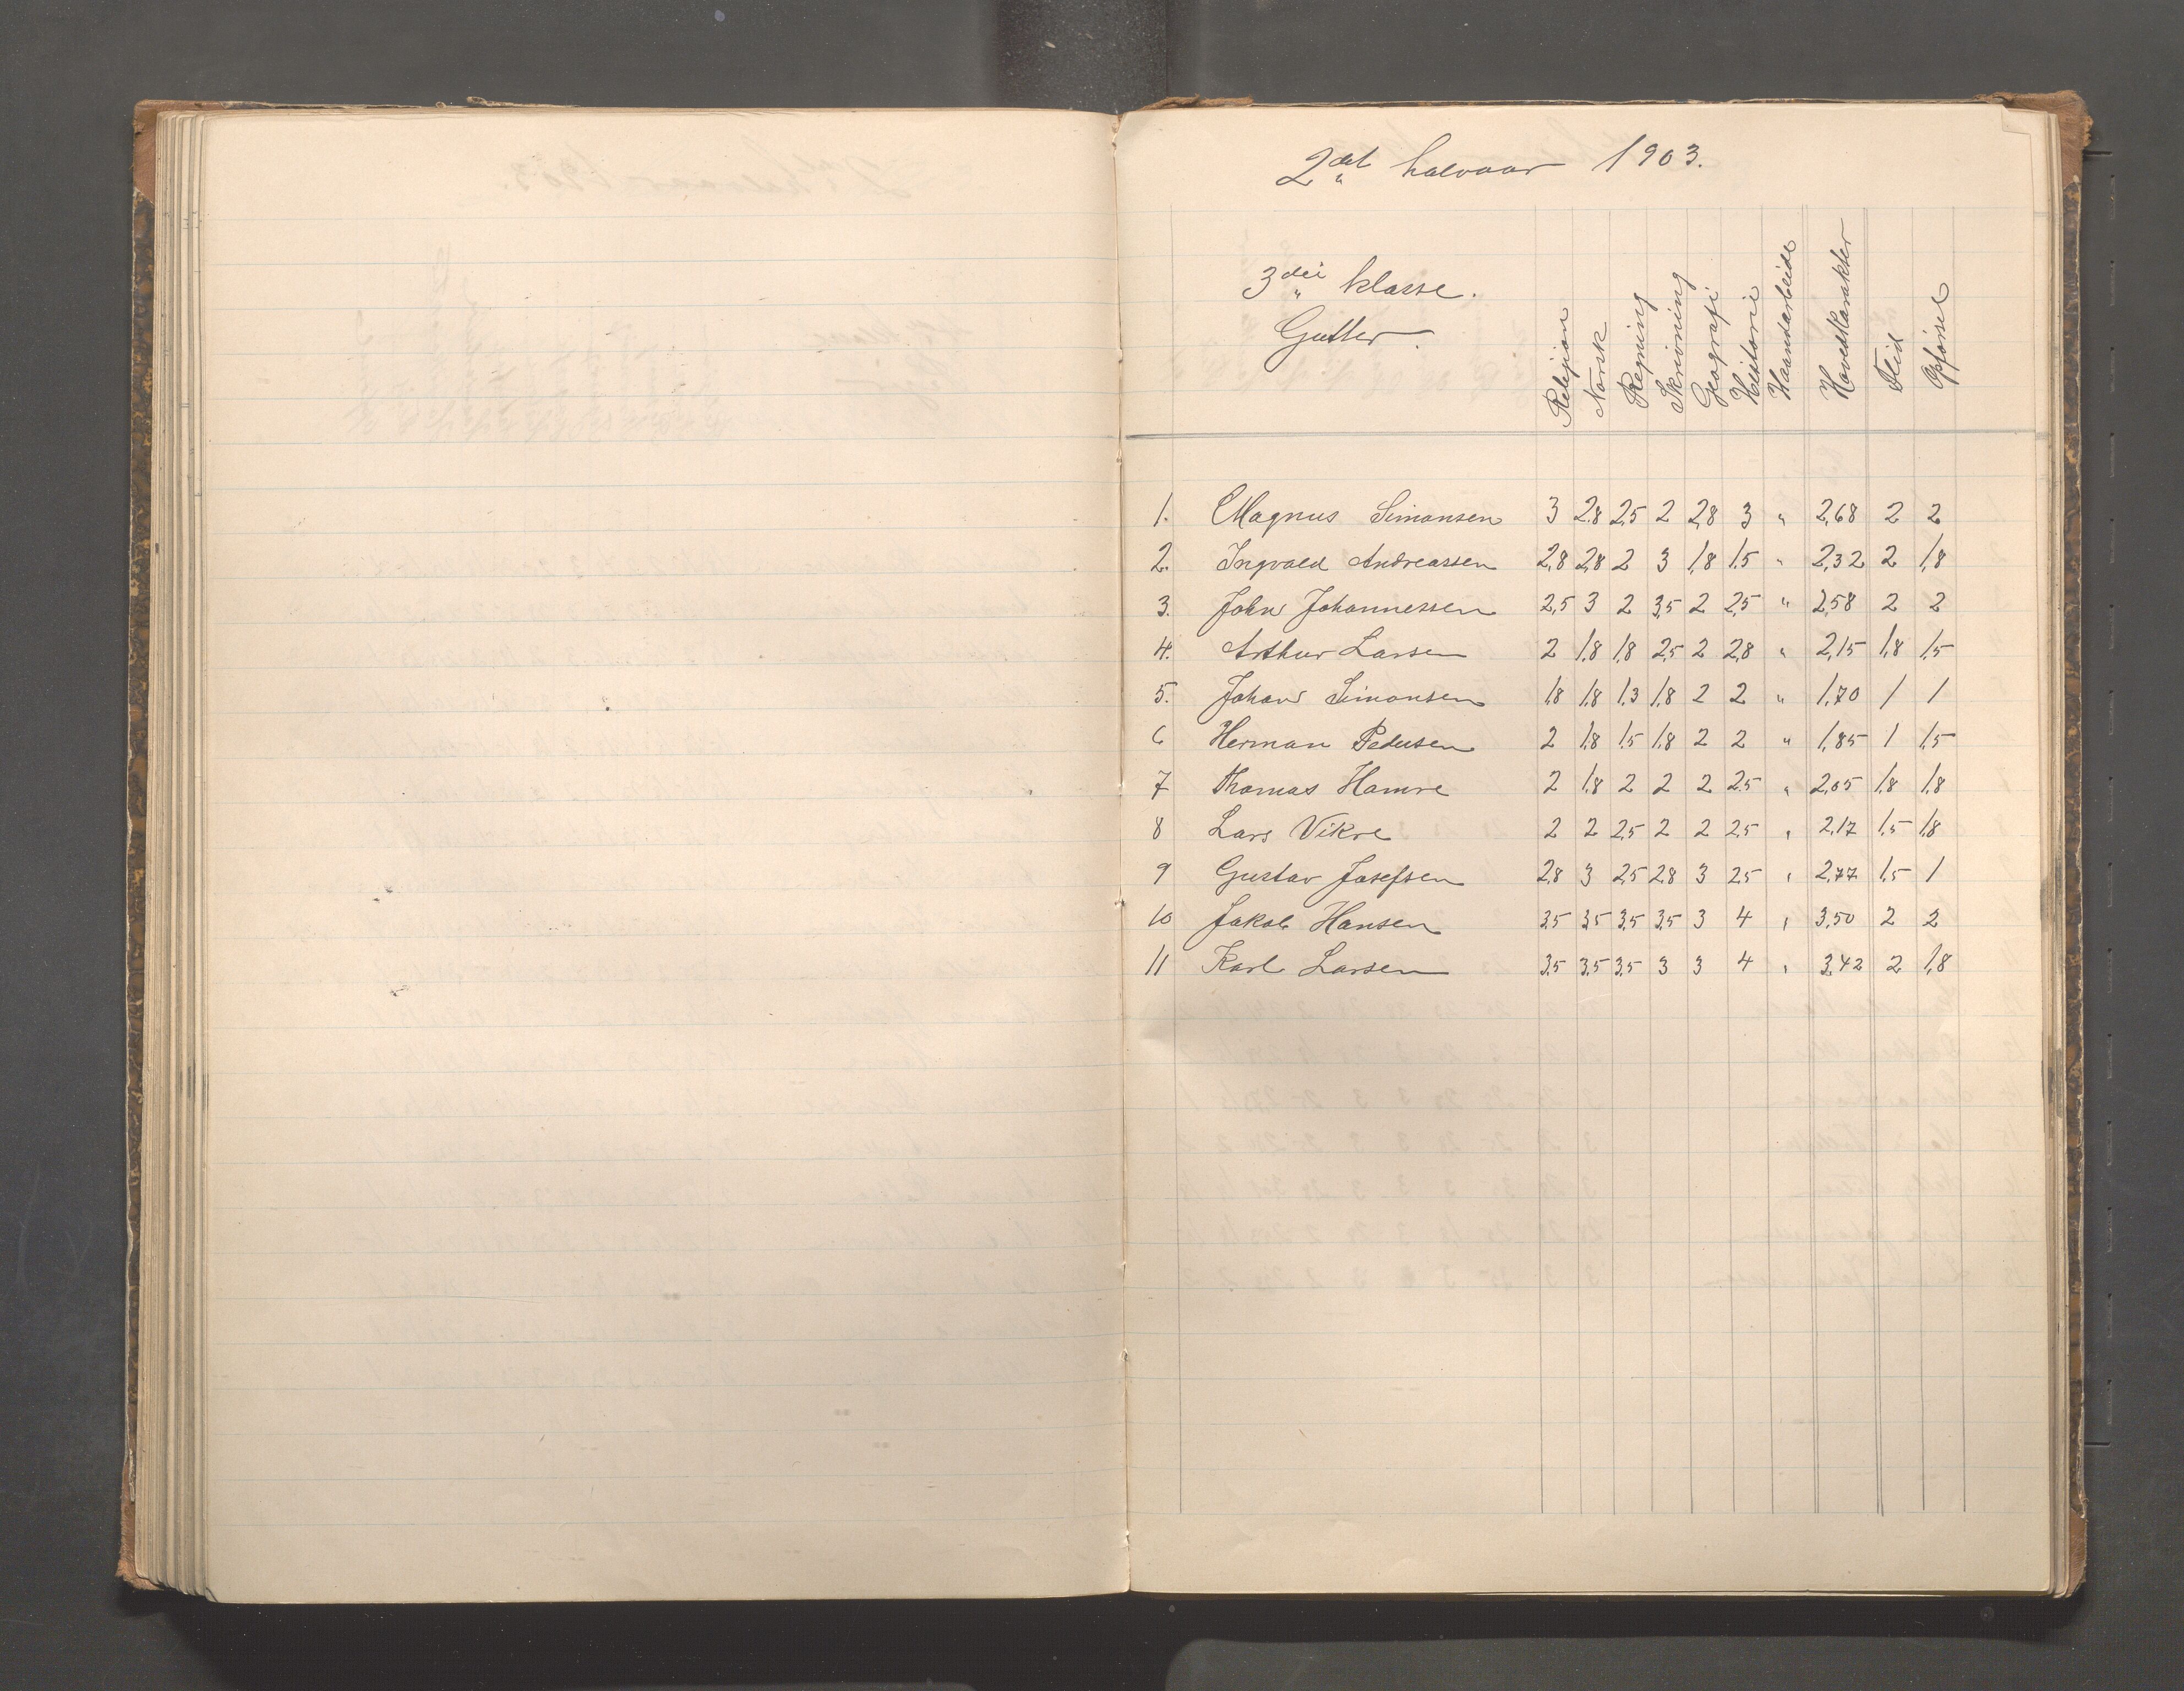 2det halvaar 1903.
3die klasse.
Gutter.
Religion Norsk Regning Skrivning Geografi Historie Haandarbeide Hovedkarakter Flid Opførsel
1. Magnus Simonsen 3 2,8 2,5 2 2,8 3 " 2,68 2 2
2. Ingvald Andreassen 2,8 2,8 2 3 1,8 1,5 " 2,32 2 1,8
3. John Johannessen 2,5 3 2 3,5 2 2,5 " 2,58 2 2
4. Arthur Larsen 2 1,8 1,8 2,5 2 2,8 " 2,15 1,8 1,5
5. Johan Simonsen 1,8 1,8 1,3 1,8 2 2 " 1,70 1 1
6 Herman Pedersen 2 1,8 1,5 1,8 2 2 " 1,85 1 1,5
7 Thomas Hamre 2 1,8 2 2 2 2,5 " 2,05 1,8 1,8
8 Lars Vikre 2 2 2,5 2 2 2,5 " 2,17 1,5 1,8
9 Gustav Josefsen 2,8 3 2,5 2,8 3 2,5 " 2,77 1,5 1
10 Jakob Hansen 3,5 3,5 3,5 3,5 3 4 " 3,50 2 2
11 Karl Larsen 3,5 3,5 3,5 3 3 4 " 3,42 2 1,8